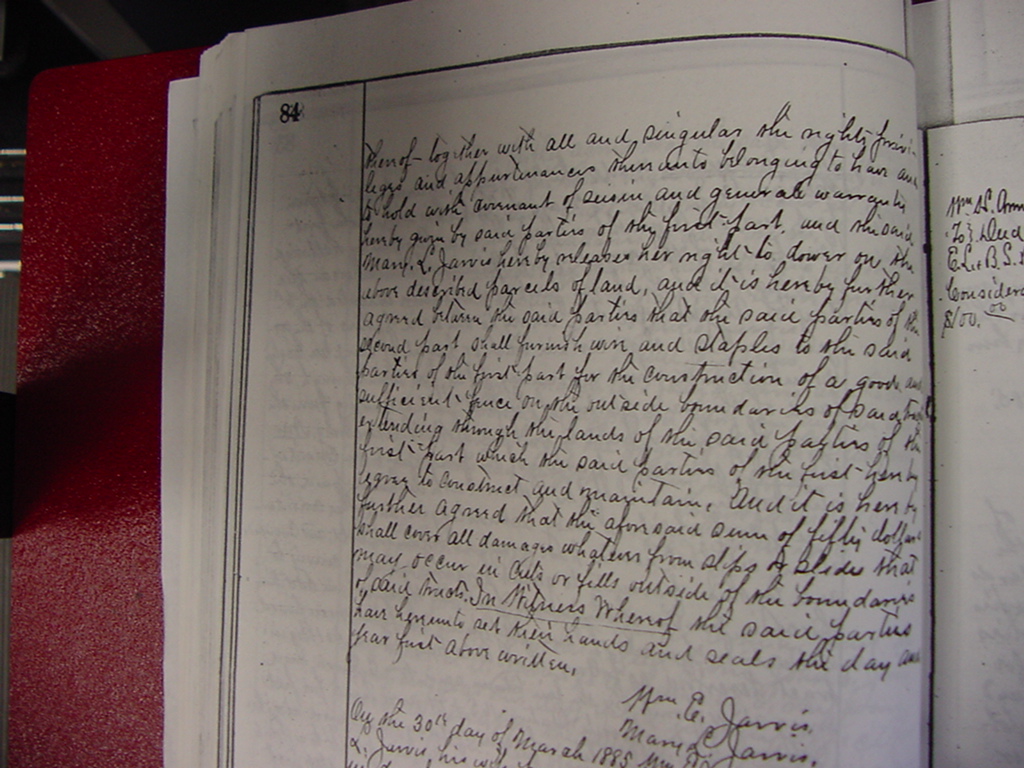 84
thereof together with all and singular the rights privi-
leges and appurtenances thereunto belonging to have and
to hold with covenant of seisin and general warranty
hereby given by said parties of the first part, and the said
Mary L. Jarvis hereby releases her right to dower on the
above described parcels of land, and it is hereby further
agreed between the said parties that the said parties of the
second part shall furnish wire and staples to the said
parties of the first part for the construction of a good and
sufficient fence on the outside boundaries of said
extending through the lands of the said parties of the
first part which the said parties of the first hereby
agree to construct and maintain. And it is hereby
further agreed that the aforesaid sum of fifty dollars
shall cover all damages whatever from slips or slides that
may occur in cuts or fills outside of the boundaries
of said tracts. In Witness Whereof the said parties
have hereunto set their hands and seals the day and
year first above written.
Wm Jarvis
Mary L Jarvis.
On the 30th day of March 1885 Wm
L. Jarvis his wife
Wm
To Deed
E. L. & B. S.
Consider
$100.00